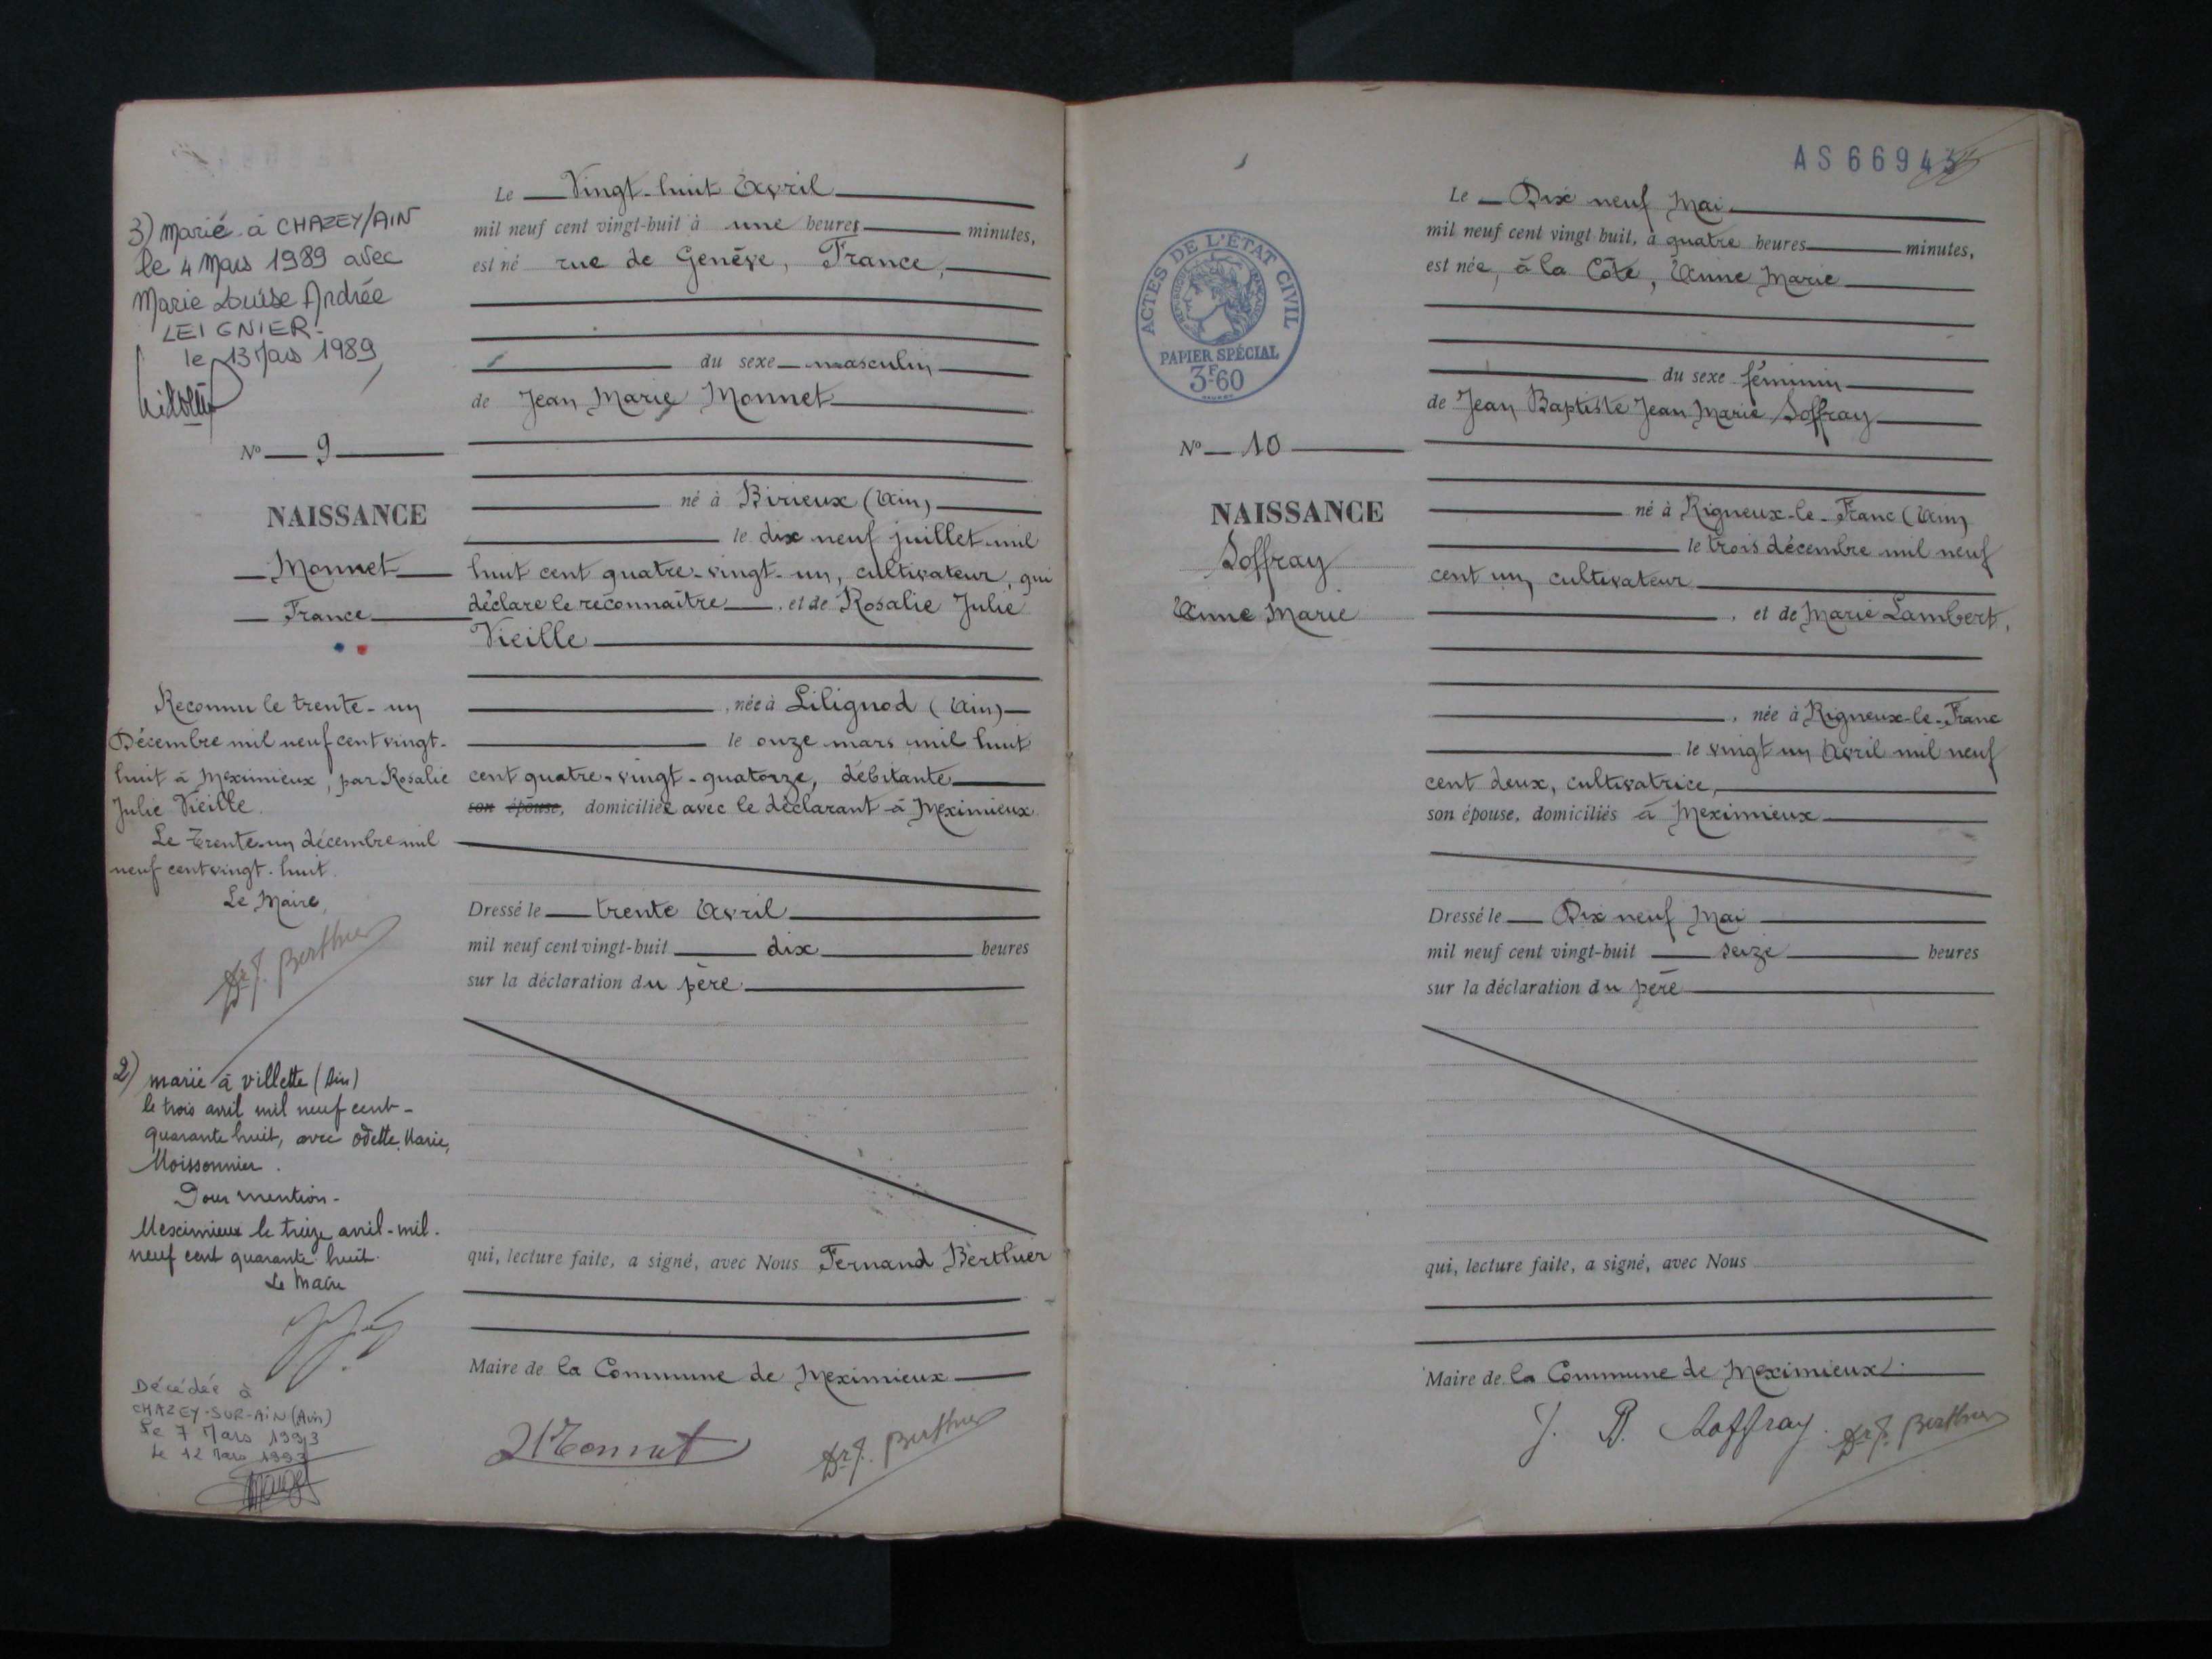 3) marié à CHAZEY/AIN
le 4 Mars 1989 avec
Marie Louise Andrée
LEIGNIER.
le 13 Mars 1989
N° 9
NAISSANCE
Monnet
France
Reconnu le trente-un
Décembre mil neuf cent vingt-
huit à Meximieux, par Rosalie
Julie Vieille.
Le Trente-un décembre mil
neuf cent vingt-huit.
Le Maire,
Dr F. Berthier
2) marié à villette (Ain)
le trois avril mil neuf cent-
quarante huit, avec Odette, Marie,
Moissonnier.
Pour mention-
Meximieux le treize avril-mil-
neuf cent quarante-huit.
Le Maire
Décédée à
CHAZEY-SUR-AIN (Ain)
Le 7 Mars 1993
Le 12 Mars 1993
Le Vingt-huit Avril
mil neuf cent vingt-huit à une heures minutes,
est né rue de Genève, France,
du sexe masculin
de Jean Marie Monnet
né à Birieux (Ain)
le dix neuf juillet mil
huit cent quatre-vingt-un, cultivateur, qui
déclare le reconnaître, et de Rosalie Julie
Vieille
, née à Lilignod (Ain)
le onze mars mil huit
cent quatre-vingt-quatorze, débitante
son épouse, domiciliée avec le déclarant à Meximieux
Dressé le trente Avril
mil neuf cent vingt-huit dix heures
sur la déclaration du père
qui, lecture faite, a signé, avec Nous Fernand Berthier
Maire de la Commune de Meximieux
Monnet
Dr F. Berthier
AS 66943
ACTES DE L'ÉTAT CIVIL
RÉPUBLIQUE FRANÇAISE
PAPIER SPÉCIAL
3F60
N° 10
NAISSANCE
Soffray
Anne Marie
Le Dix neuf Mai
mil neuf cent vingt huit, à quatre heures minutes,
est née, à la Côte, Anne Marie
du sexe féminin
de Jean Baptiste Jean Marie Soffray
né à Rigneux-le-Franc (Ain)
le trois décembre mil neuf
cent un, cultivateur
, et de Marie Lambert,
, née à Rigneux-le-Franc
le vingt un Avril mil neuf
cent deux, cultivatrice,
son épouse, domiciliés à Meximieux
Dressé le Dix neuf Mai
mil neuf cent vingt-huit seize heures
sur la déclaration du père
qui, lecture faite, a signé, avec Nous
Maire de la Commune de Meximieux.
J. B. Soffray. Dr F. Berthier